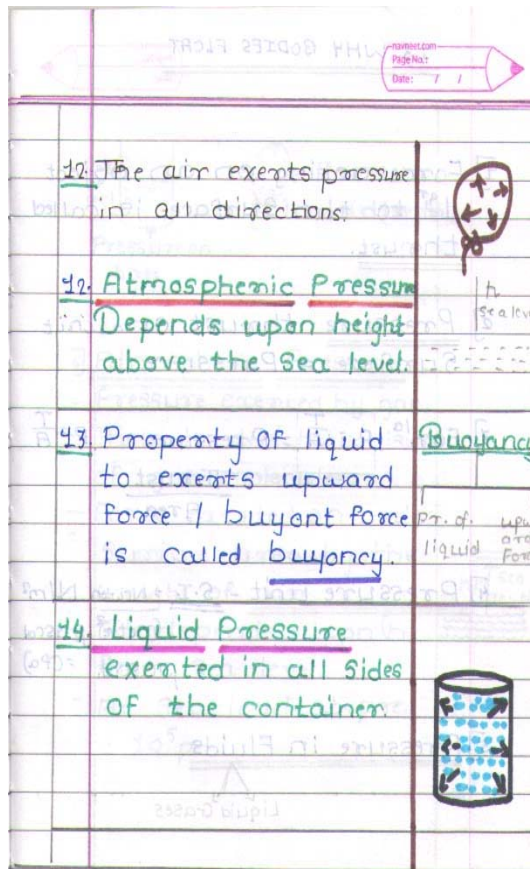 navneet.com
Page No.:
Date: / /
12. The air exerts pressure
in all directions.
12. Atmospheric Pressure
Depends upon height
above the sea level.
h
sea level
13. Property of liquid
to exerts upward
force / buyont force
is called buyoncy.
Buoyancy
Pr. of
liquid
14. Liquid Pressure
exerted in all sides
of the container.